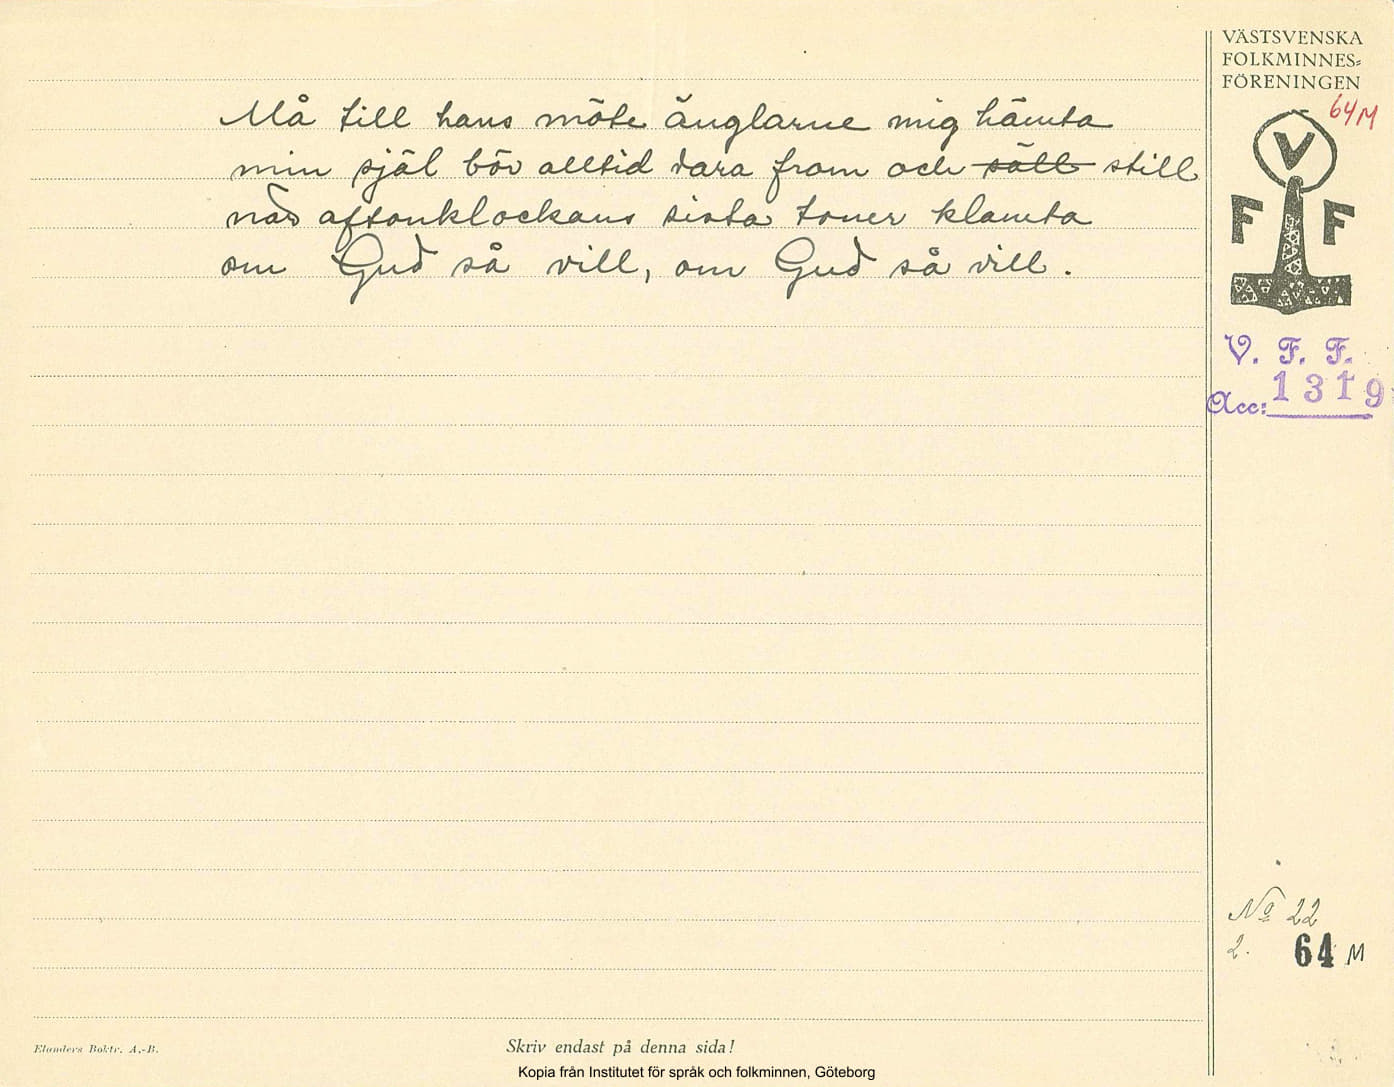 VÄSTSVENSKA
FOLKMINNES=
FÖRENINGEN
64 M
Må till hans möte änglarne mig hämta
min själ bör alltid vara from och säll still
när aftonklockans sista toner klämta
om Gud så vill, om Gud så vill.
V
F F
V. F. F.
Acc: 1319
No 22
2. 64 M
Elanders Boktr. A.-B.
Skriv endast på denna sida!
Kopia från Institutet för språk och folkminnen, Göteborg